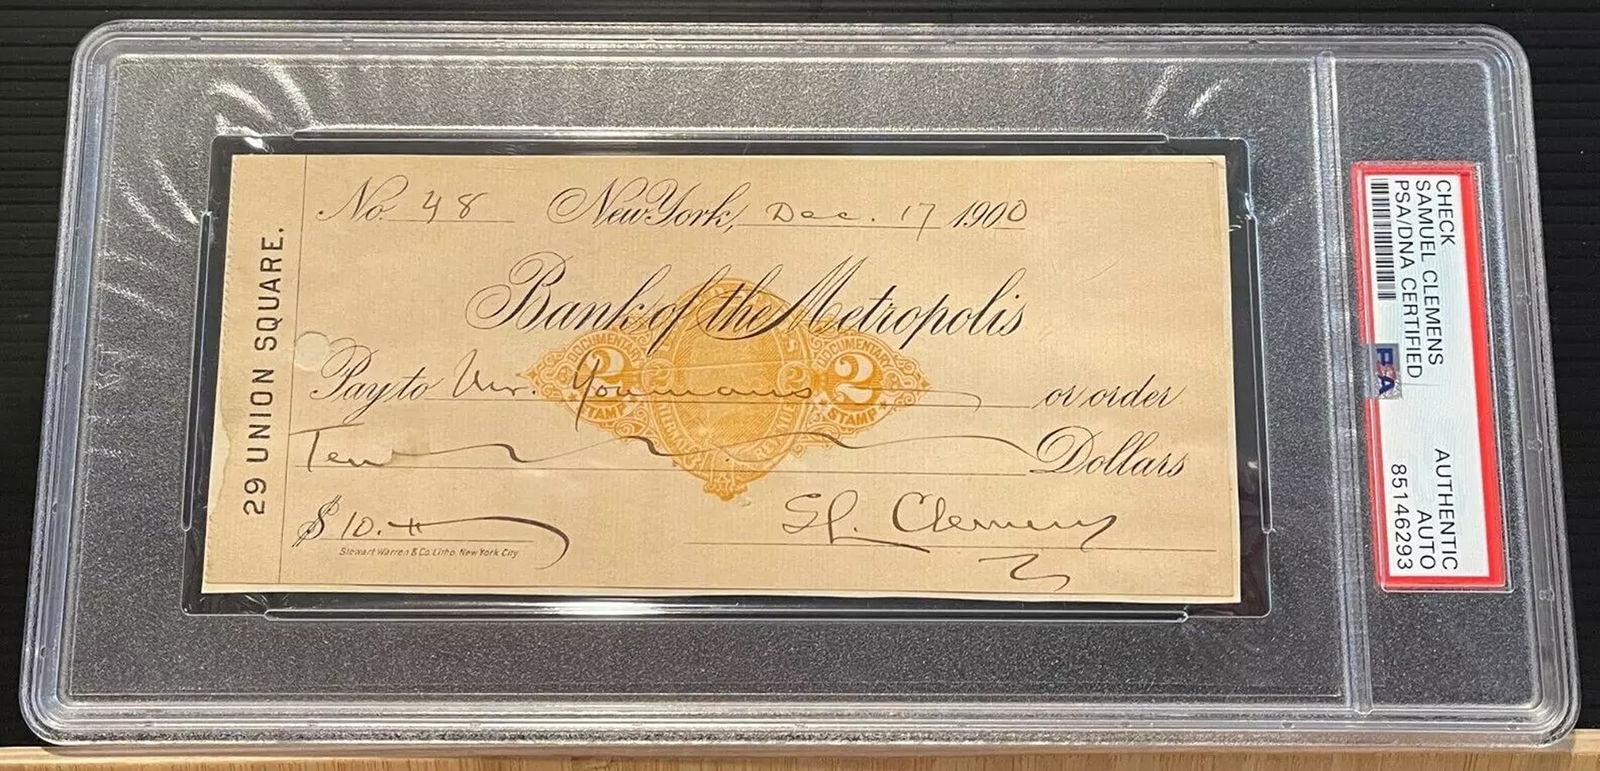 29 UNION SQUARE.
No. 48 New York, Dec. 17 1900
Bank of the Metropolis
DOCUMENTARY DOCUMENTARY
2 2 2 2
STAMP STAMP
Pay to Mr. Youmans or order
Ten Dollars
$ 10.
S L. Clemens
Stewart Warren & Co. Litho. New York City
CHECK
SAMUEL CLEMENS
PSA/DNA CERTIFIED
PSA
AUTHENTIC
AUTO
85146293